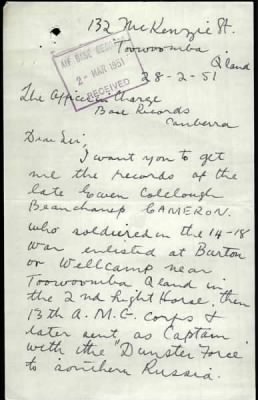 132 McKenzie St.
Toowoomba
Qland
28-2-51
AIF BASE RECORDS
2 - MAR 1951
RECEIVED
The Officer in Charge
Base Records
Canberra
Dear Sir,
I want you to get
me the records of the
late Ewen Colclough
Beauchamp CAMERON.
who soldiered in the 14-18
War enlisted at Burton
or Wellcamp near
Toowoomba Qland in
the 2nd Light Horse, then
13th A.M.G. Corps &
later sent as Captain
with the "Dunster Force
to southern Russia.